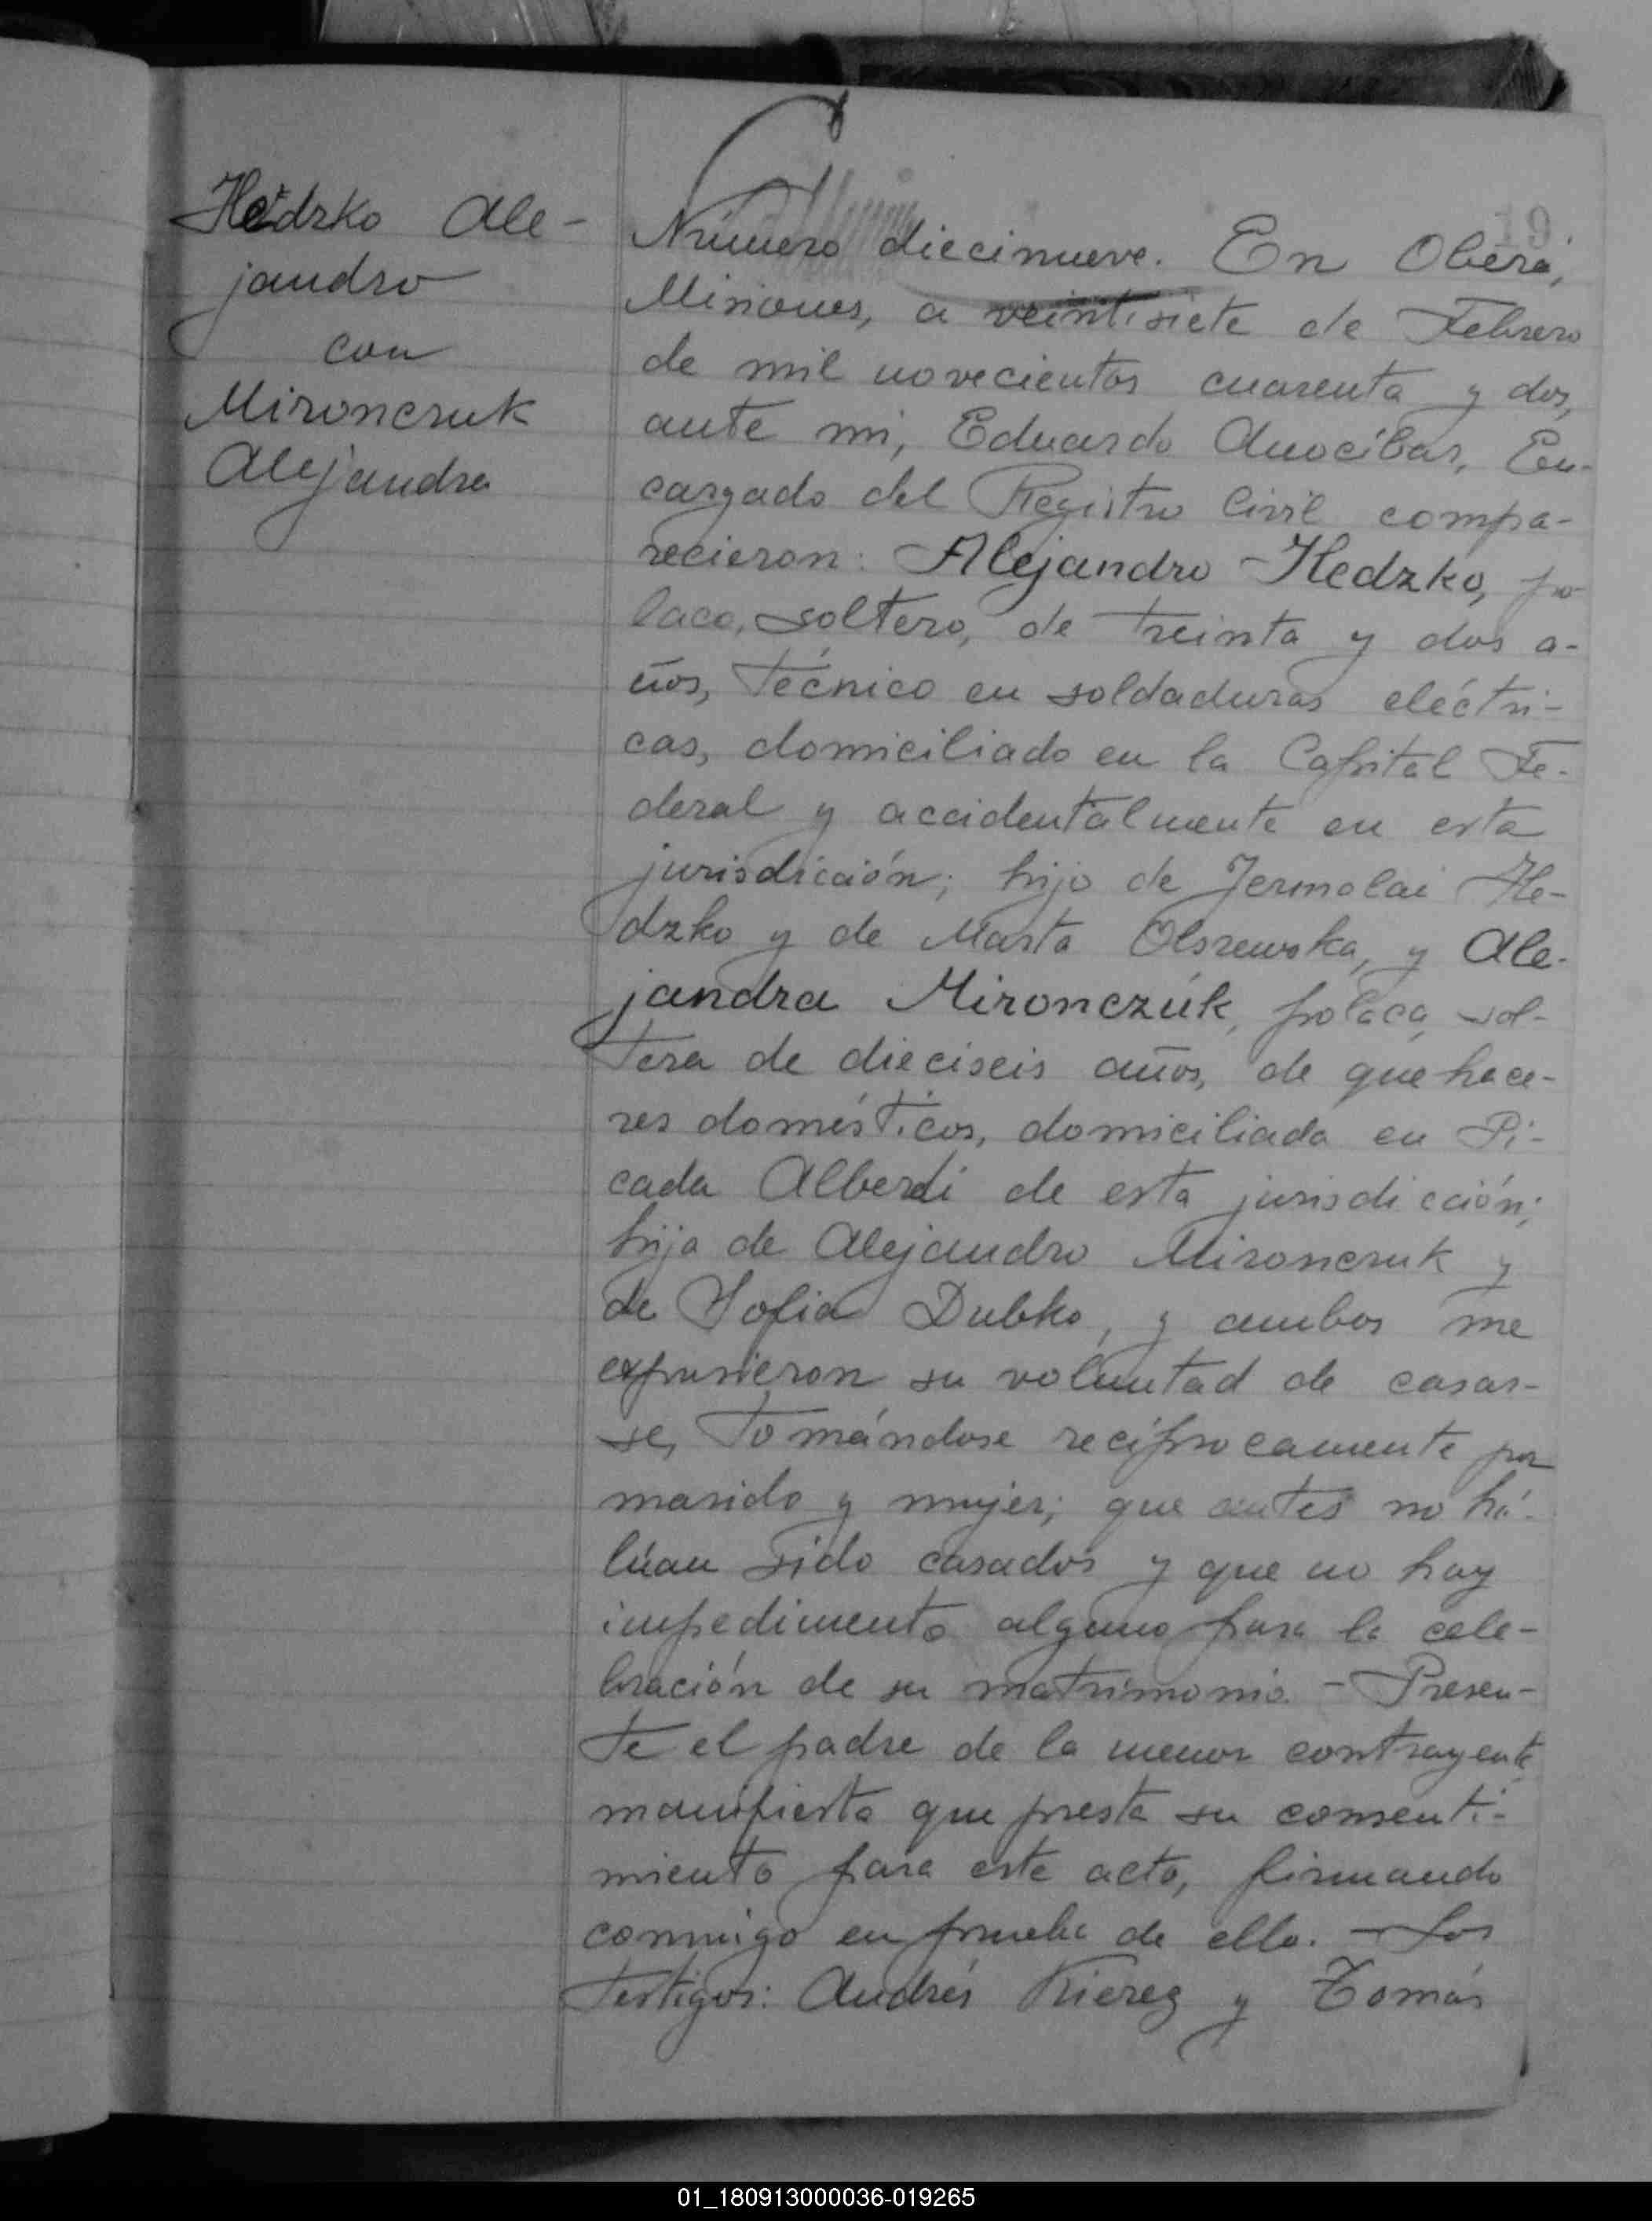 Hedzko Ale-
jandro
con
Mironcsuk
Alejandra
19
Número diecinueve. En Oberá,
Misiones, a veintisiete de Febrero
de mil novecientos cuarenta y dos,
ante mi, Eduardo Anocíbar, En-
cargado del Registro Civil compa-
recieron: Alejandro Hedzko, po-
laco, soltero, de treinta y dos a-
ños, técnico en soldaduras eléctri-
cas, domiciliado en la Capital Fe-
deral y accidentalmente en esta
jurisdicción; hijo de Jermolai He-
dzko y de Marta Olszewska, y Ale-
jandra Mironczúk, polaca, sol-
tera de dieciseis años, de quehace-
res domésticos, domiciliada en Pi-
cada Alberdi de esta jurisdicción;
hija de Alejandro Mironcsuk y
de Sofia Dubko, y ambos me
expusieron su voluntad de casar-
se, tomándose recíprocamente por
marido y mujer; que antes no ha-
bían sido casados y que no hay
impedimento alguno para la cele-
bración de su matrimonio. - Presen-
te el padre de la menor contrayente
manifiesta que presta su consenti-
miento para este acto, firmando
conmigo en prueba de ello. - Los
testigos: Andrés Kiereg y Tomás
01_180913000036-019265